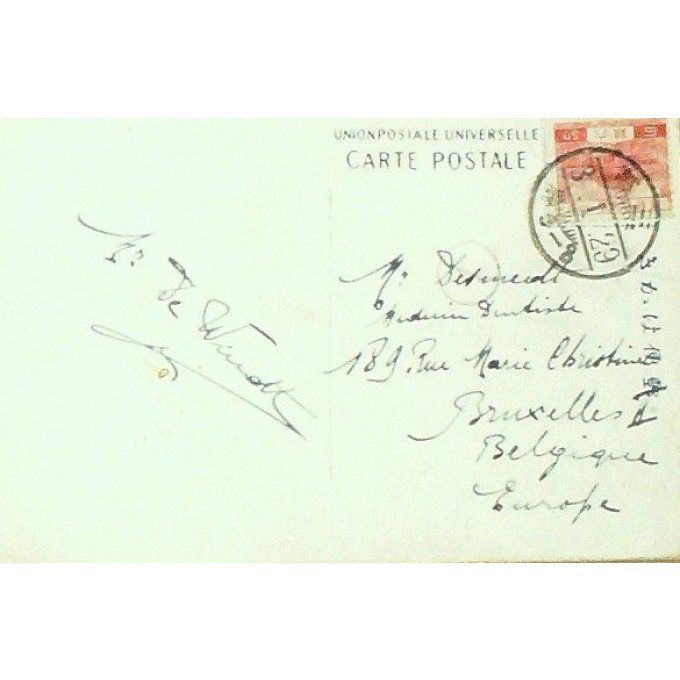 UNION POSTALE UNIVERSELLE
CARTE POSTALE
3.1.29
Mr De Windt
Mr Desmedt
Médecin Dentiste
189. Rue Marie Christine
Bruxelles
Belgique
Europe